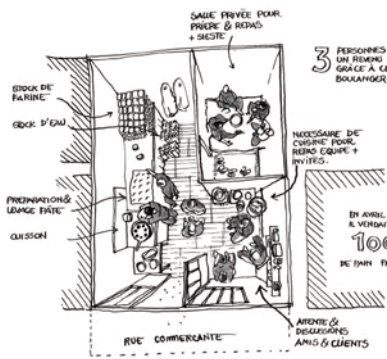 SALLE PRIVÉE POUR
PRIÈRE & REPAS
+ SIESTE
3 PERSONNES
UN REVENU
GRÂCE À CE
BOULANGER
STOCK DE
FARINE
STOCK D'EAU
NECESSAIRE DE
CUISINE POUR
REPAS EQUIPE +
INVITÉS.
PREPARATION &
LEVAGE PÂTE
CUISSON
EN AVRIL
IL VENDAI
100
DE PAIN
ATTENTE &
DISCUSSIONS
AMIS & CLIENTS
RUE COMMERÇANTE